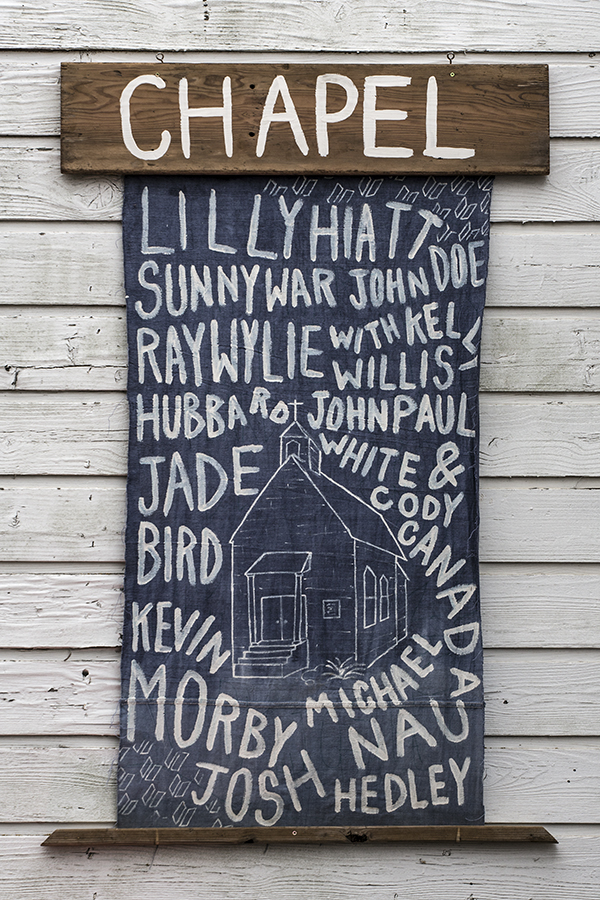 CHAPEL
LILLY HIATT
SUNNY WAR JOHN DOE
RAY WYLIE WITH KELLY
WILLIS
HUBBARD JOHN PAUL
WHITE &
JADE
CODY
BIRD
CANADA
KEVIN
MORBY
MICHAEL
NAU
JOSH HEDLEY